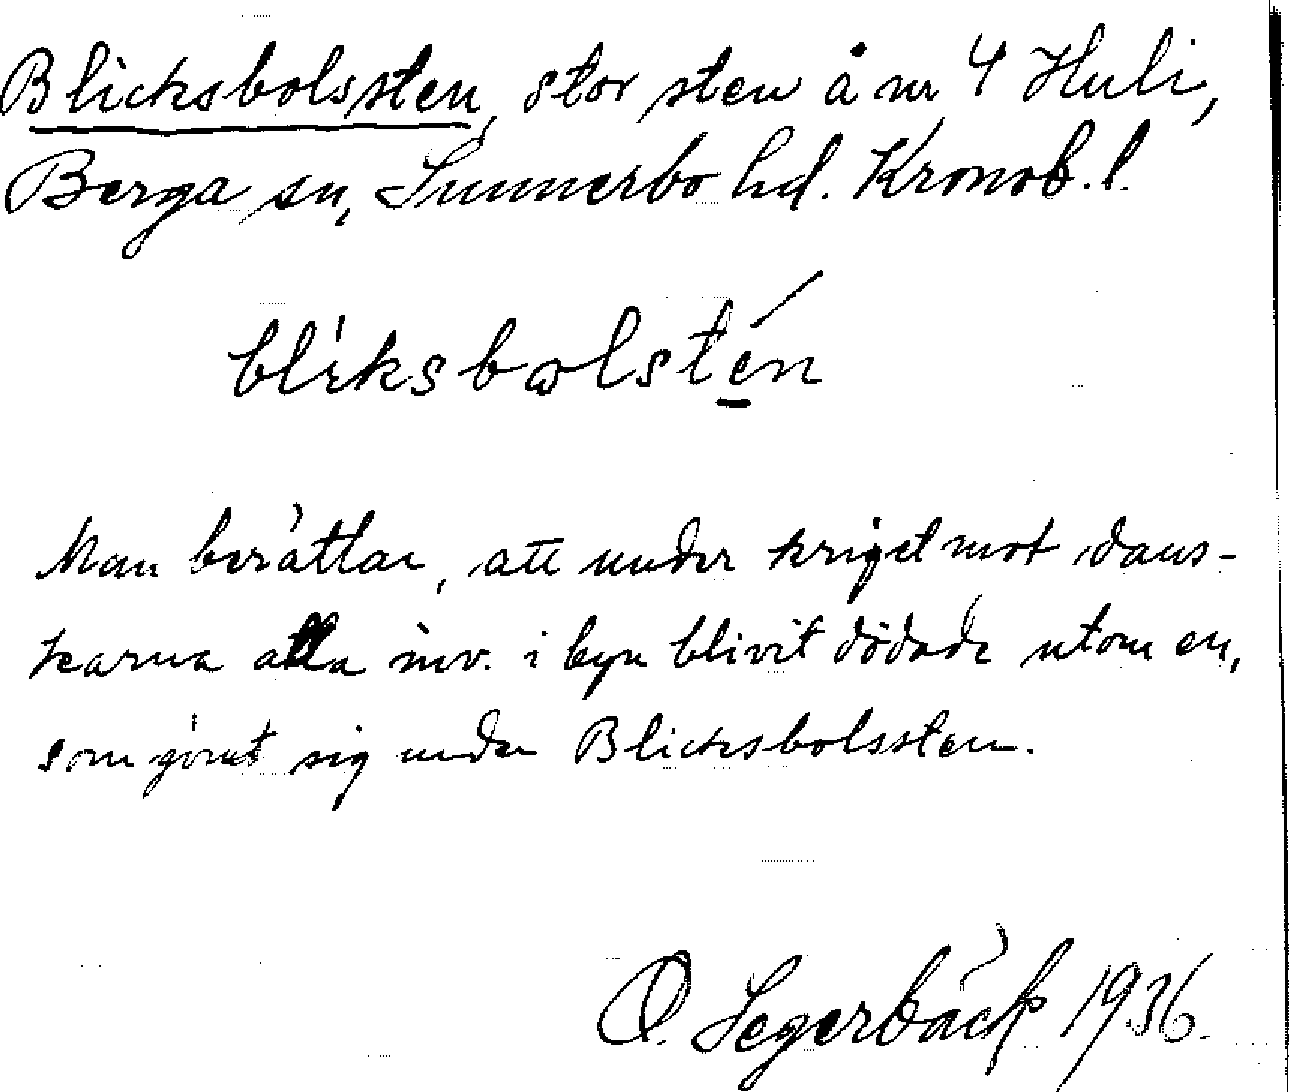 Blicksbolssten, stor sten å nr 4 Huli,
Berga sn, Sunnerbo hd. Kronob. l.
bliksbωlstén
Man berättar, att under kriget mot dans-
karna alla inv. i byn blivit dödade utom en,
som gömt sig under Blicksbolssten.
O. Segerbäck 1936.